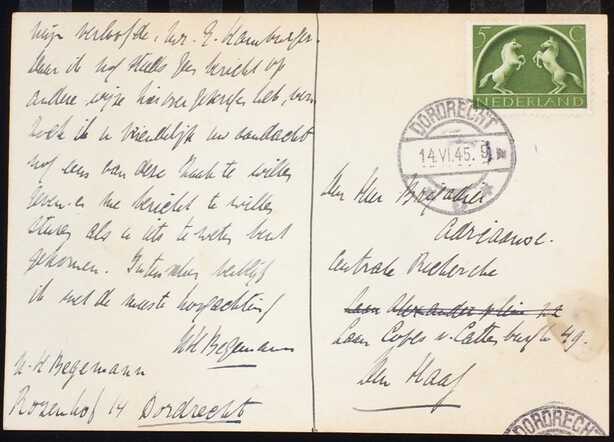 mijn verloofde, Mr. E. Hamburger.
Daar ik nog steeds geen bericht op
andere wijze hierover gekregen heb, ver-
zoek ik U vriendelijk uw aandacht
nog eens aan deze zaak te willen
geven en me bericht te willen
sturen als U iets te weten bent
gekomen. Intusschen verblijf
ik met de meeste hoogachting
WH Begemann
W. H. Begemann
Rozenhof 14 Dordrecht
5 C
NEDERLAND
DORDRECHT
14.VI.45.
Den Heer
Adriaanse.
Centrale Recherche
Laan Copes v. Cattenburgh 49.
Den Haag
DORDRECHT